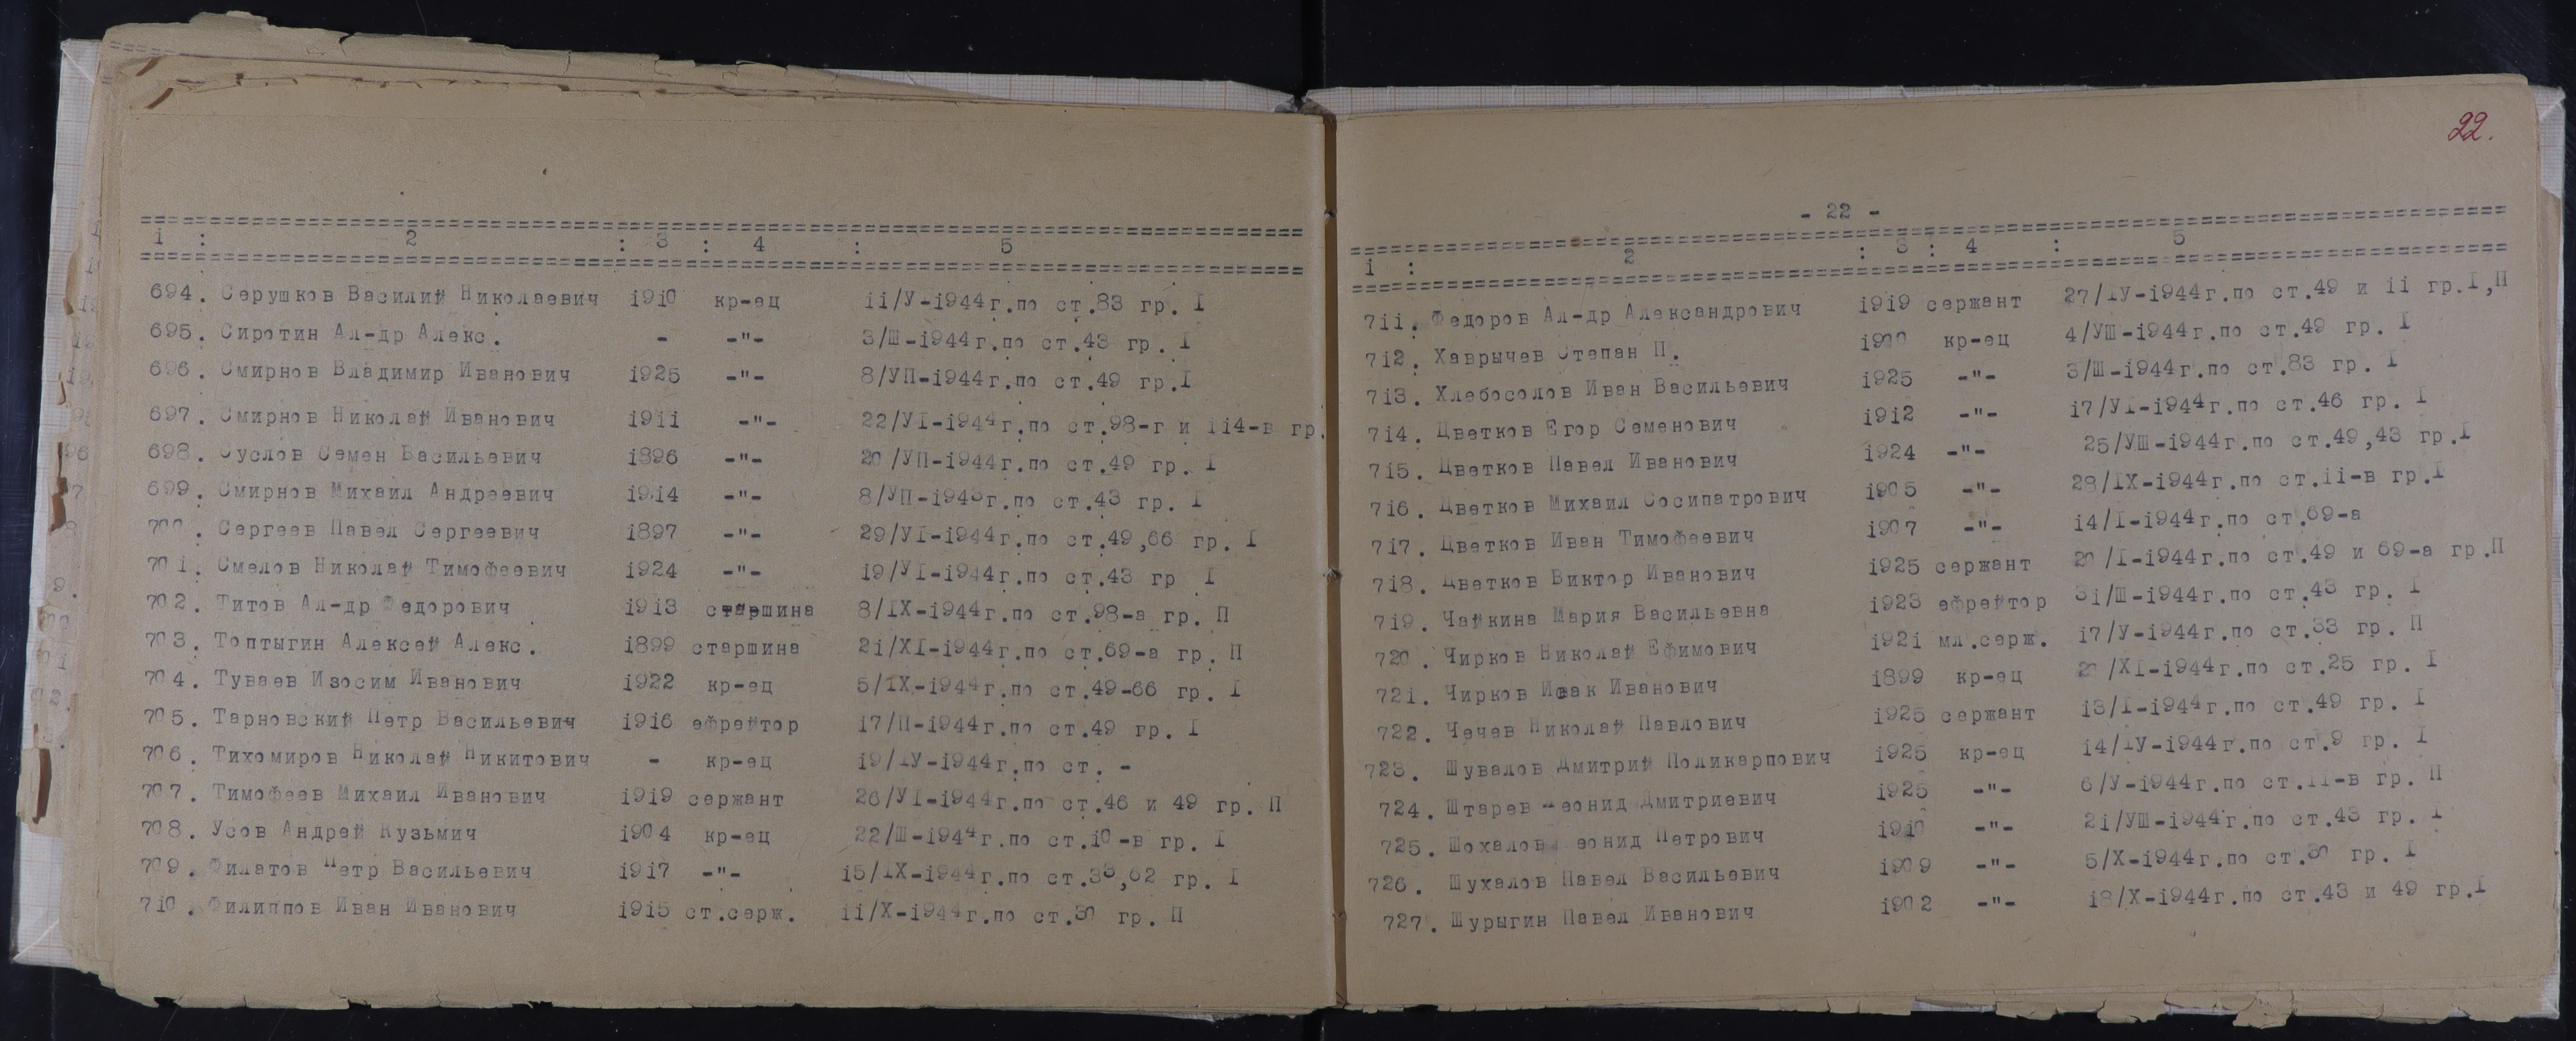 1 : 2 : 3 : 4 : 5
694. Серушков Василий Николаевич 1910 кр-ец 11/У-1944г.по ст.83 гр. I
695. Сиротин Ал-др Алекс. - -"- 3/Ш-1944г.по ст.43 гр. I
696. Смирнов Владимир Иванович 1925 -"- 8/УП-1944г.по ст.49 гр.I
697. Смирнов Николай Иванович 1911 -"- 22/УI-1944г.по ст.98-г и 114-в гр.
698. Суслов Семен Васильевич 1896 -"- 20/УП-1944г.по ст.49 гр. I
699. Смирнов Михаил Андреевич 1914 -"- 8/УП-1943г.по ст.43 гр. I
700. Сергеев Павел Сергеевич 1897 -"- 29/УI-1944г.по ст.49,66 гр. I
701. Смелов Николай Тимофеевич 1924 -"- 19/УI-1944г.по ст.43 гр I
702. Титов Ал-др Федорович 1913 старшина 8/IХ-1944г.по ст.98-а гр. П
703. Топтыгин Алексей Алекс. 1899 старшина 21/ХI-1944г.по ст.69-а гр. П
704. Туваев Изосим Иванович 1922 кр-ец 5/IХ-1944г.по ст.49-66 гр. I
705. Тарновский Петр Васильевич 1916 ефрейтор 17/П-1944г.по ст.49 гр. I
706. Тихомиров Николай Никитович - кр-ец 19/IУ-1944г.по ст. -
707. Тимофеев Михаил Иванович 1919 сержант 26/УI-1944г.по ст.46 и 49 гр. П
708. Усов Андрей Кузьмич 1904 кр-ец 22/Ш-1944г.по ст.10-в гр. I
709. Филатов Петр Васильевич 1917 -"- 15/IХ-1944г.по ст.33,62 гр. I
710. Филиппов Иван Иванович 1915 ст.серж. 11/Х-1944г.по ст.30 гр. П
22.
- 22 -
1 : 2 : 3 : 4 : 5
711. Федоров Ал-др Александрович 1919 сержант 27/IУ-1944г.по ст.49 и 11 гр.I,П
712. Хаврычев Степан П. кр-ец 4/УШ-1944г.по ст.49 гр. I
713. Хлебосолов Иван Васильевич 1925 -"- 3/Ш-1944г.по ст.83 гр. I
714. Цветков Егор Семенович 1912 -"- 17/УI-1944г.по ст.46 гр. I
715. Цветков Павел Иванович 1924 -"- 25/УШ-1944г.по ст.49,43 гр.I
716. Цветков Михаил Сосипатрович 1905 -"- 28/IХ-1944г.по ст.11-в гр.I
717. Цветков Иван Тимофеевич 1907 -"- 14/I-1944г.по ст.69-а
718. Цветков Виктор Иванович 1925 сержант 20/I-1944г.по ст.49 и 69-а гр.П
719. Чайкина Мария Васильевна 1923 ефрейтор 31/Ш-1944г.по ст.43 гр. I
720. Чирков Николай Ефимович 1921 мл.серж. 17/У-1944г.по ст.33 гр. П
721. Чирков Исак Иванович 1899 кр-ец 20/ХI-1944г.по ст.25 гр. I
722. Чечев Николай Павлович 1925 сержант 13/I-1944г.по ст.49 гр. I
723. Шувалов Дмитрий Поликарпович 1925 кр-ец 14/IУ-1944г.по ст.9 гр. I
724. Штарев Леонид Дмитриевич 1925 -"- 6/У-1944г.по ст.11-в гр. П
725. Шохалов Леонид Петрович 1910 -"- 21/УШ-1944г.по ст.43 гр. I
726. Шухалов Павел Васильевич 1909 -"- 5/Х-1944г.по ст.30 гр. I
727. Шурыгин Павел Иванович 1902 -"- 18/Х-1944г.по ст.43 и 49 гр.I